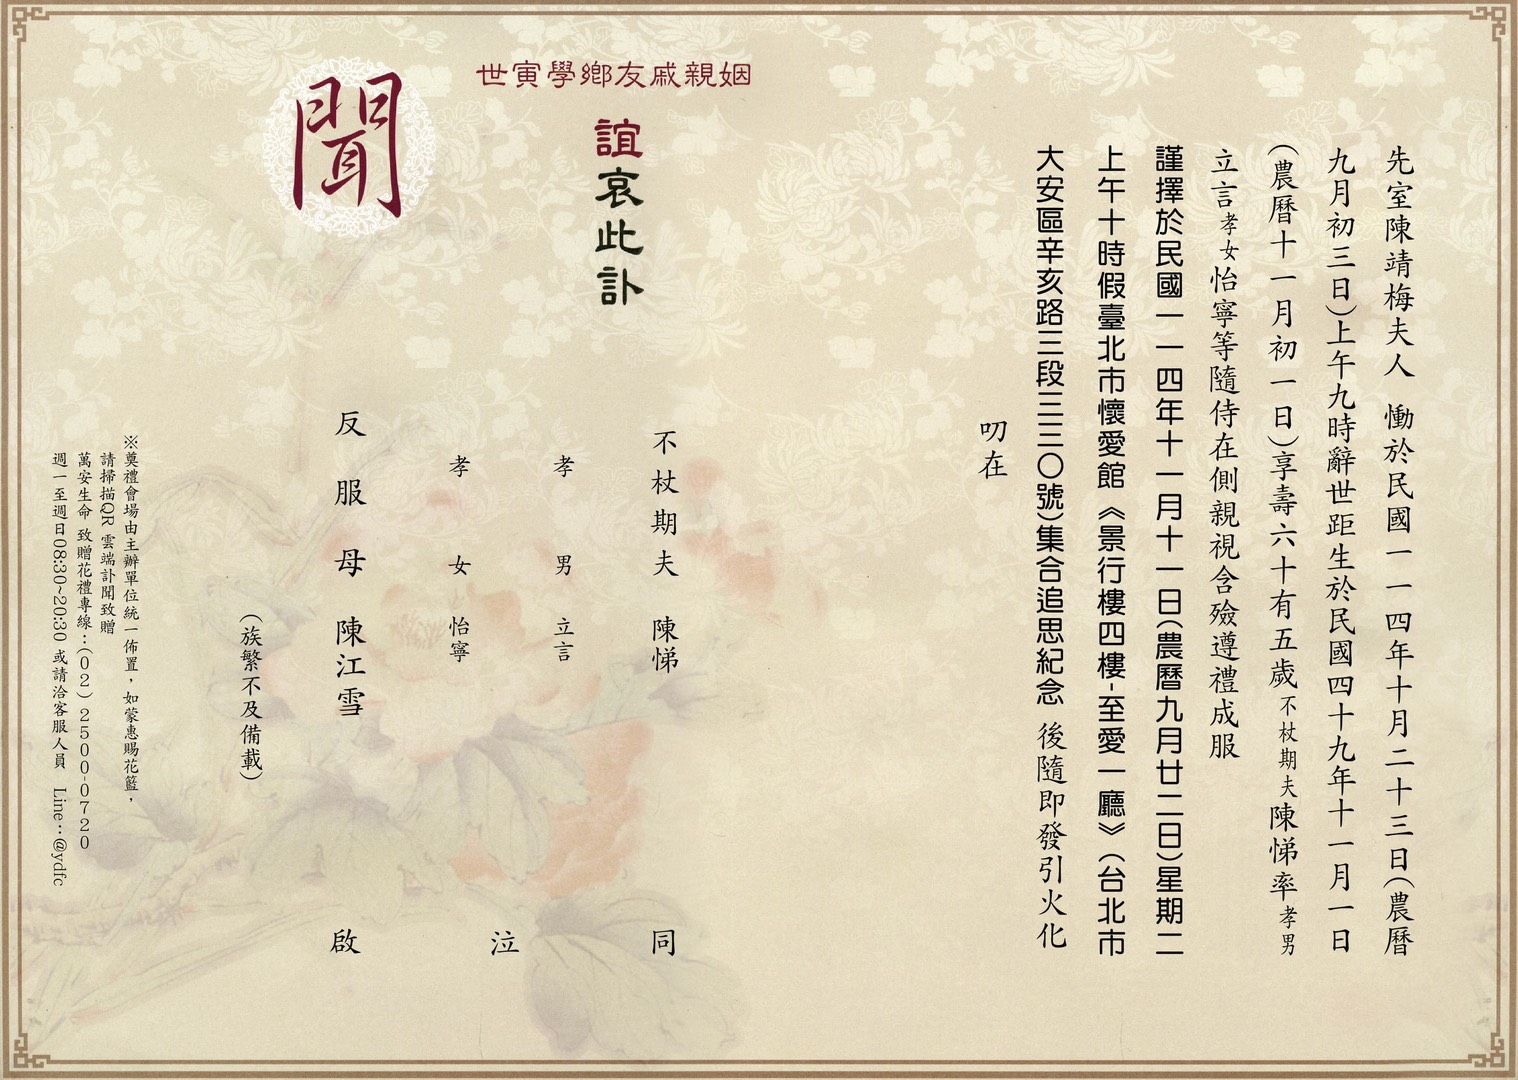 先室陳靖梅夫人　慟於民國一一四年十月二十三日(農曆
九月初三日)上午九時辭世距生於民國四十九年十一月一日
(農曆十一月初一日)享壽六十有五歲不杖期夫陳悌率孝男
立言孝女怡寧等隨侍在側親視含殮遵禮成服
謹擇於民國一一四年十一月十一日(農曆九月廿二日)星期二
上午十時假臺北市懷愛館《景行樓四樓-至愛一廳》(台北市
大安區辛亥路三段三三〇號)集合追思紀念 後隨即發引火化
叨在
姻親戚友鄉學寅世
誼哀此訃
聞
不杖期夫　陳悌
孝男　立言
孝女　怡寧
反服母　陳江雪
同
泣
啟
(族繁不及備載)
※奠禮會場由主辦單位統一佈置，如蒙惠賜花籃，
請掃描QR 雲端訃聞致贈
萬安生命 致贈花禮專線：(02) 2500-0720
週一至週日08:30~20:30 或請洽客服人員　Line：@ydfc